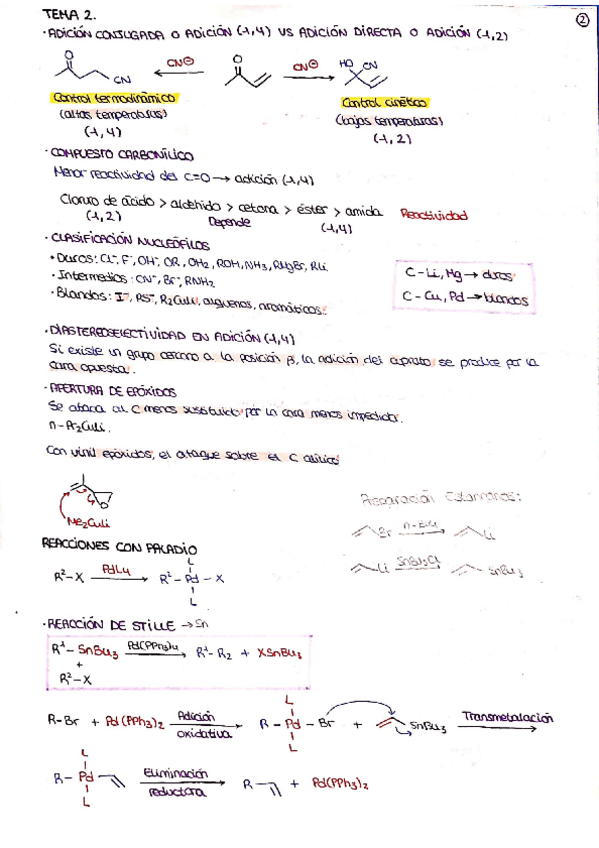 TEMA 2.
②
· ADICIÓN CONJUGADA O ADICIÓN (1,4) VS ADICIÓN DIRECTA O ADICIÓN (1,2)
O CN CN⊖ O CN⊖ HO CN
Control termodinámico
(altas temperaturas)
(1,4)
Control cinético
(bajas temperaturas)
(1,2)
· COMPUESTO CARBONÍLICO
Menor reactividad del C=O → adición (1,4)
Cloruro de ácido > aldehído > cetona > éster > amida Reactividad
(1,2) Depende (1,4)
· CLASIFICACIÓN NUCLEÓFILOS
· Duros: Cl⁻, F⁻, OH⁻, OR⁻, OH2, ROH, NH3, RMgBr, RLi
· Intermedios: CN⁻, Br⁻, RNH2
· Blandos: I⁻, RS⁻, R2CuLi, alquenos, aromáticos.
C-Li, Mg → duros
C-Cu, Pd → blandos
· DIASTEREOSELECTIVIDAD EN ADICIÓN (1,4)
Si existe un grupo cercano a la posición β, la adición del cuprato se produce por la
cara opuesta.
· APERTURA DE EPÓXIDOS
Se ataca al C menos sustituido por la cara menos impedida.
Con vinil epóxidos, el ataque sobre el C alílico
O
Me2CuLi
Preparación Estannanos:
Br n-BuLi Li
Li SnBu3Cl SnBu3
REACCIONES CON PALADIO
R²-X PdL4 R²-Pd-X
L
L
· REACCIÓN DE STILLE → Sn
R¹-SnBu3 Pd(PPh3)4 R¹-R2 + XSnBu3
+
R²-X
R-Br + Pd(PPh3)2 Adición oxidativa R-Pd-Br + SnBu3 Transmetalación
L
L
R-Pd Eliminación reductora R + Pd(PPh3)2
L
L